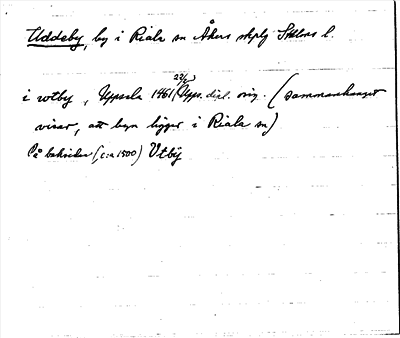 Uddeby, by i Riala sn Åkers skplg Sthlms l.
i wtby, Uppsala 1461 22/5 Upps. dipl. orig. (sammanhanget
visar, att byn ligger i Riala sn)
På baksidan (c:a 1500) Vtby